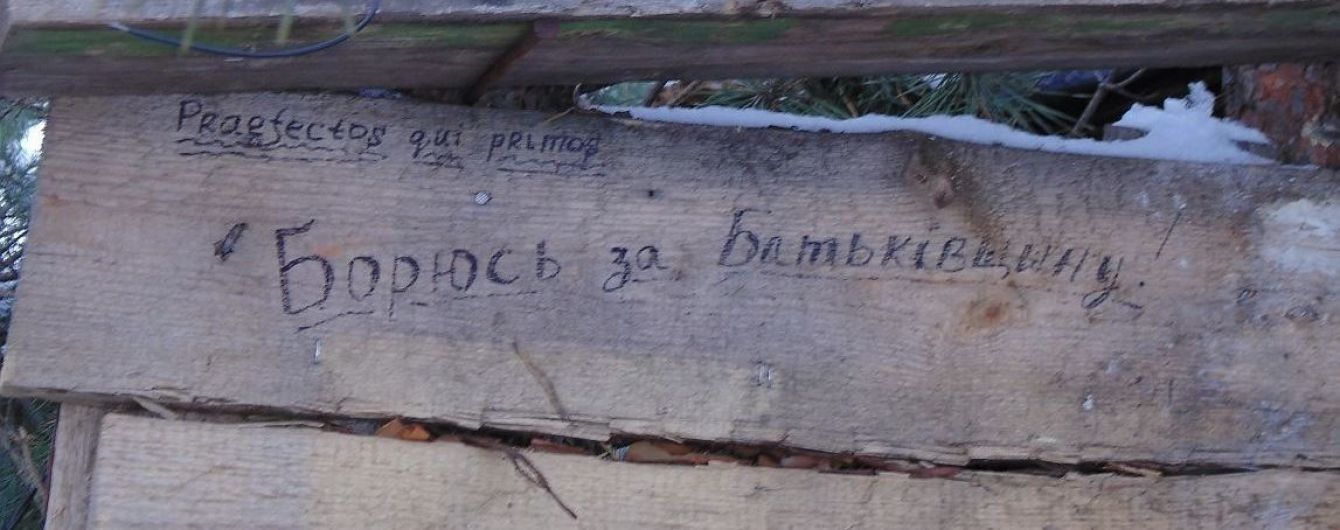 Praefectos qui primos
Борюсь за Батьківщину!